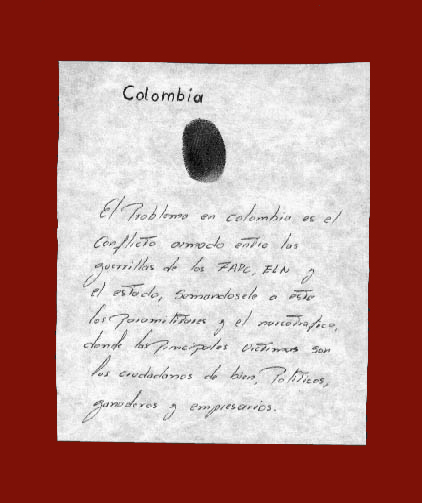 Colombia
El Problema en colombia es el
conflicto armado entre las
guerrillas de las FARC, ELN y
el estado, sumandosele a este
los paramilitares y el narcotrafico,
donde las principales victimas son
los ciudadanos de bien, Politicos,
ganaderos y empresarios.